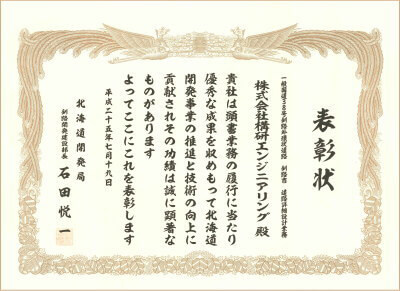 表彰状
一般国道38号釧路外環状道路 釧路市 道路詳細設計業務
株式会社構研エンジニアリング 殿
貴社は頭書業務の履行に当たり
優秀な成果を収めもって北海道
開発事業の推進と技術の向上に
貢献されその功績は誠に顕著な
ものがあります
よってここにこれを表彰します
平成二十五年七月十九日
北海道開発局
釧路開発建設部長 石田悦一